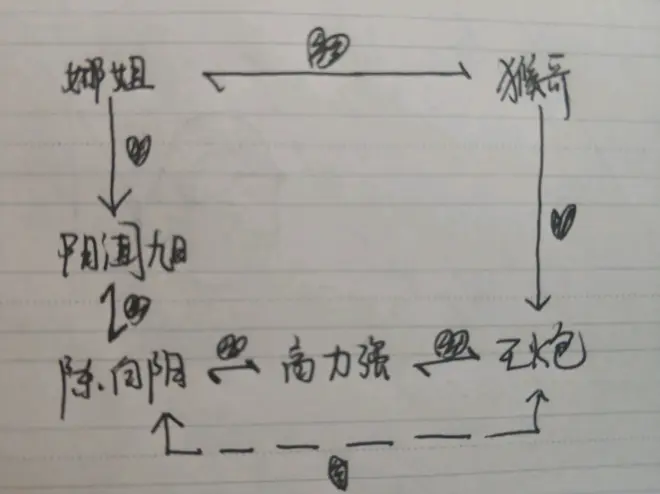 娜姐 猴哥
阳润旭
陈向阳 高力强 王炮